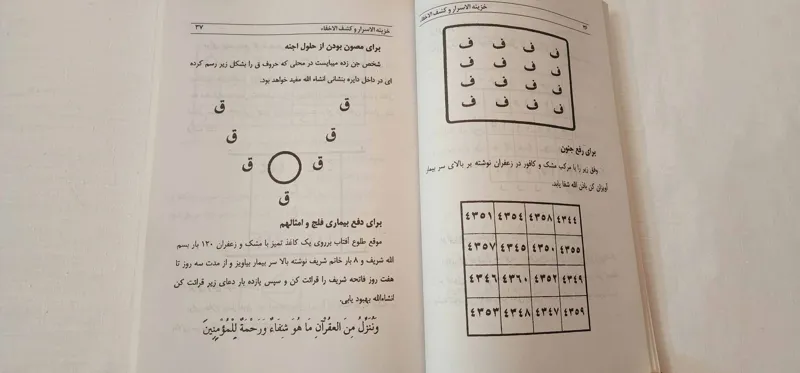 خزینه الاسرار و کشف الاخفاء
ف ف ف ف
ف ف ف ف
ف ف ف ف
ف ف ف ف
برای رفع جنون
وفق زیر را با مرکب مشک و کافور در زعفران نوشته بر بالای سر بیمار
آویزان کن باذن الله شفا یابد.
٤٣٤٤ ٤٣٥٨ ٤٣٥٤ ٤٣٥١
٤٣٥٥ ٤٣٥٠ ٤٣٤٥ ٤٣٥٧
٤٣٤٩ ٤٣٥٢ ٤٣٦٠ ٤٣٤٦
٤٣٥٩ ٤٣٤٧ ٤٣٤٨ ٤٣٥٣
خزینه الاسرار و کشف الاخفاء ۳۷
برای مصون بودن از حلول اجنه
شخص جن زده میبایست در محلی که حروف ق را بشکل زیر رسم کرده
ای در داخل دایره بنشانی انشاء الله مفید خواهد بود.
ق ق
ق ق
ق ق
ق
برای دفع بیماری فلج و امثالهم
موقع طلوع آفتاب برروی یک کاغذ تمیز با مشک و زعفران ۱۲۰ بار بسم
الله شریف و ۸ بار خاتم شریف نوشته بالا سر بیمار بیاویز و از مدت سه روز تا
هفت روز فاتحه شریف را قرائت کن و سپس یازده بار دعای زیر قرائت کن
انشاءالله بهبود یابی.
وَنُنَزِّلُ مِنَ العقُرآنِ مَا هُوَ شِفَاءٌ وَرَحْمَةٌ لِلْمُؤْمِنِینَ